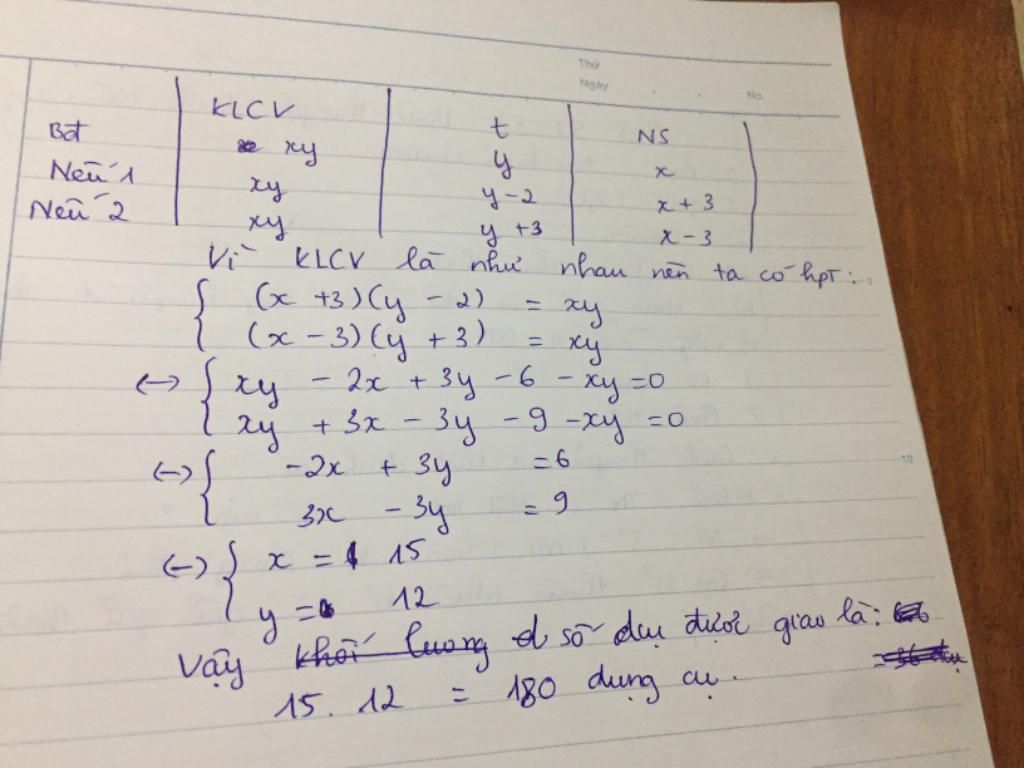 Thứ
Ngày No.
KLCV t NS
Bđ xy y x
Nếu 1 xy y - 2 x + 3
Nếu 2 xy y + 3 x - 3
Vì KLCV là như nhau nên ta có hpt:
(x + 3)(y - 2) = xy
(x - 3)(y + 3) = xy
<-> xy - 2x + 3y - 6 - xy = 0
xy + 3x - 3y - 9 - xy = 0
<-> -2x + 3y = 6
3x - 3y = 9
<-> x = 15
y = 12
Vậy khối luong số dcu được giao là:
= 36 dcu
15 . 12 = 180 dụng cụ.
10